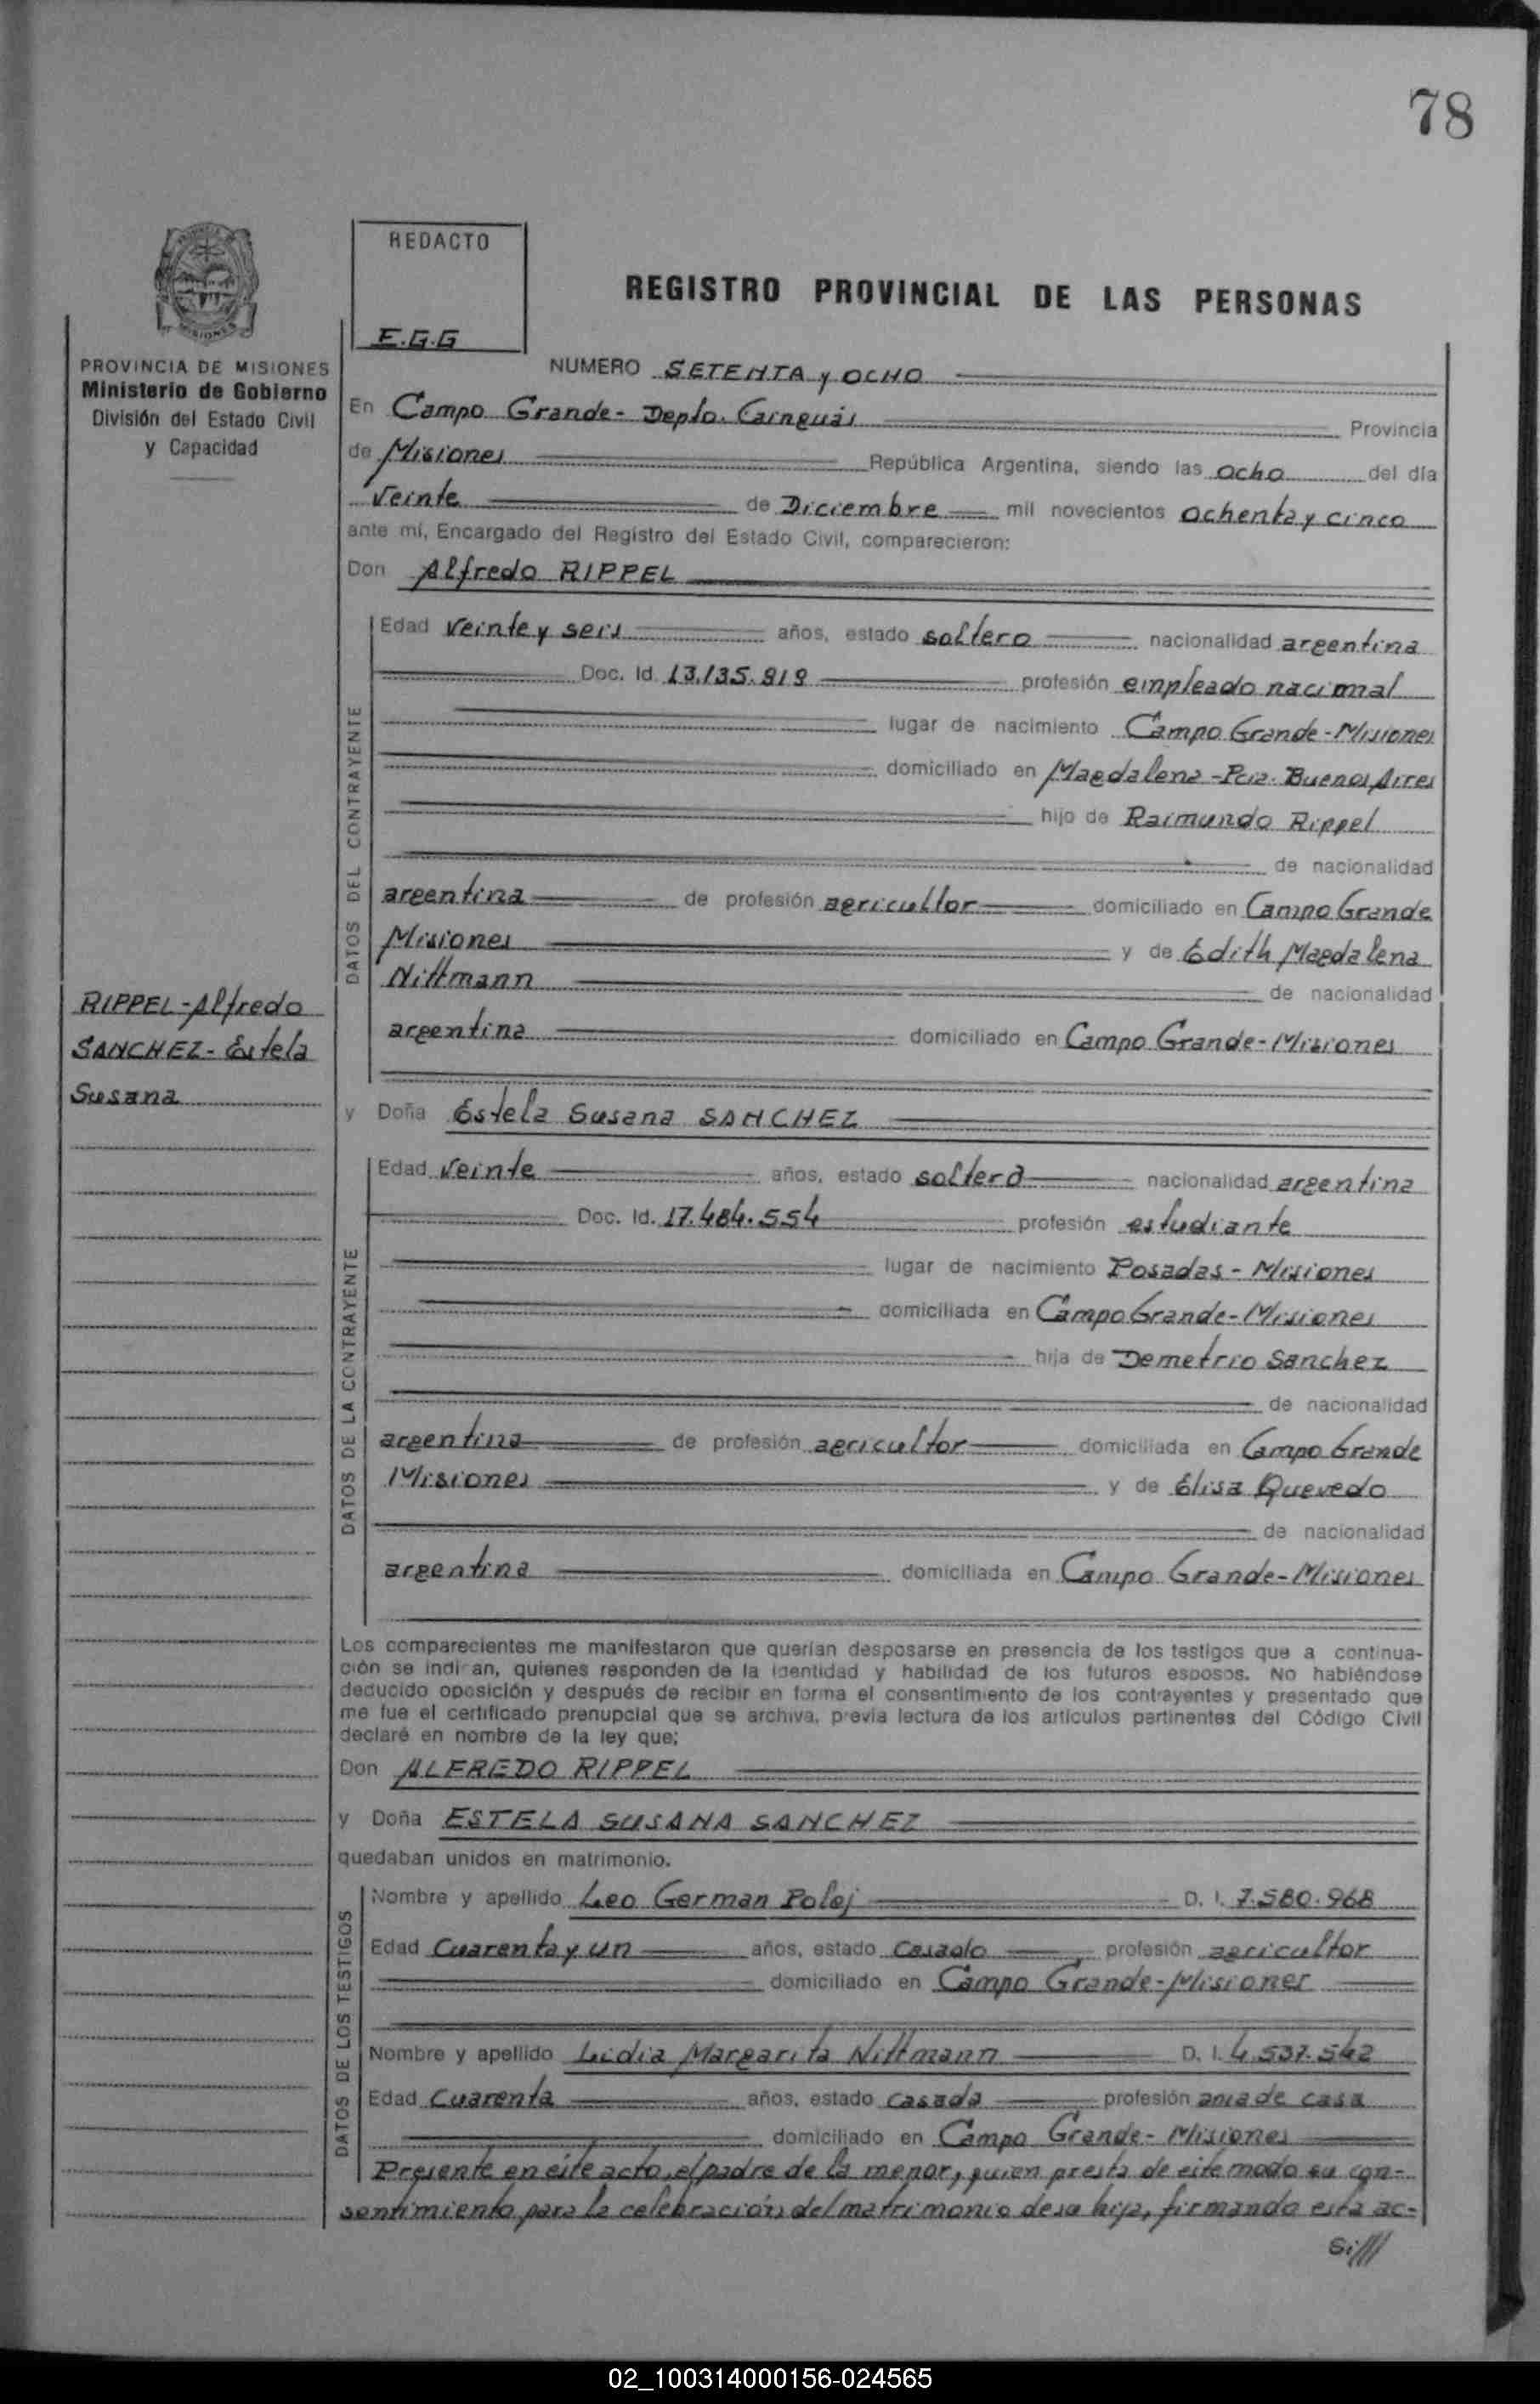 78
REDACTO
E.G.G
REGISTRO PROVINCIAL DE LAS PERSONAS
PROVINCIA DE MISIONES
Ministerio de Gobierno
División del Estado Civil
y Capacidad
NUMERO SETENTA y OCHO
En Campo Grande - Depto. Cainguás Provincia
de Misiones República Argentina, siendo las ocho del día
veinte de Diciembre mil novecientos ochenta y cinco
ante mí, Encargado del Registro del Estado Civil, comparecieron:
Don Alfredo RIPPEL
DATOS DEL CONTRAYENTE
Edad veinte y seis años, estado soltero nacionalidad argentina
Doc. Id. 13.135.819 profesión empleado nacional
lugar de nacimiento Campo Grande - Misiones
domiciliado en Magdalena - Pcia. Buenos Aires
hijo de Raimundo Rippel
de nacionalidad
argentina de profesión agricultor domiciliado en Campo Grande
Misiones y de Edith Magdalena
Nittmann de nacionalidad
argentina domiciliado en Campo Grande - Misiones
RIPPEL - Alfredo
SANCHEZ - Estela
Susana
y Doña Estela Susana SANCHEZ
DATOS DE LA CONTRAYENTE
Edad veinte años, estado soltera nacionalidad argentina
Doc. Id. 17.484.554 profesión estudiante
lugar de nacimiento Posadas - Misiones
domiciliada en Campo Grande - Misiones
hija de Demetrio Sanchez
de nacionalidad
argentina de profesión agricultor domiciliada en Campo Grande
Misiones y de Elisa Quevedo
de nacionalidad
argentina domiciliada en Campo Grande - Misiones
Los comparecientes me manifestaron que querían desposarse en presencia de los testigos que a continua-
ción se indi an, quienes responden de la identidad y habilidad de los futuros esposos. No habiéndose
deducido oposición y después de recibir en forma el consentimiento de los contrayentes y presentado que
me fue el certificado prenupcial que se archiva, previa lectura de los artículos pertinentes del Código Civil
declaré en nombre de la ley que;
Don ALFREDO RIPPEL
y Doña ESTELA SUSANA SANCHEZ
quedaban unidos en matrimonio.
DATOS DE LOS TESTIGOS
Nombre y apellido Leo German Polej D. I. 7.580.968
Edad Cuarenta y un años, estado casado profesión agricultor
domiciliado en Campo Grande - Misiones
Nombre y apellido Lidia Margarita Nittmann D. I. 4.537.542
Edad Cuarenta años, estado casada profesión ama de casa
domiciliado en Campo Grande - Misiones
Presente en este acto, el padre de la menor, quien presta de este modo su con-
sentimiento para la celebración del matrimonio de su hija, firmando esta ac-
02_100314000156-024565